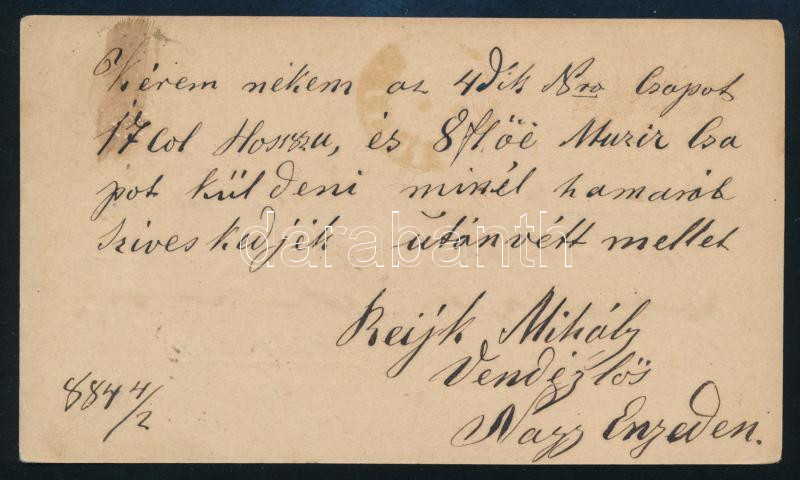 Kérem nékem az 4dik Nro Csapot
17 Col Hosszu, és 8 Muzir Csa
pot küldeni minél hamaráb
sziveskedjék utánvétt mellet
darabanth
Reijk Mihály
Vendéglős
Nagy Enyeden.
884 4/2